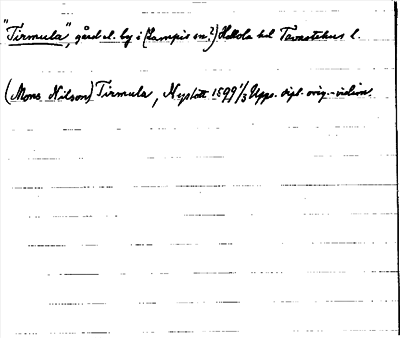 "Tirmula", gård el. by i (Lampis sn?) Hollola hd Tavastehus l.
(Mons Nilson) Tirmula, Nyslott 1599 1/3 Upps. dipl. orig.-vidim.